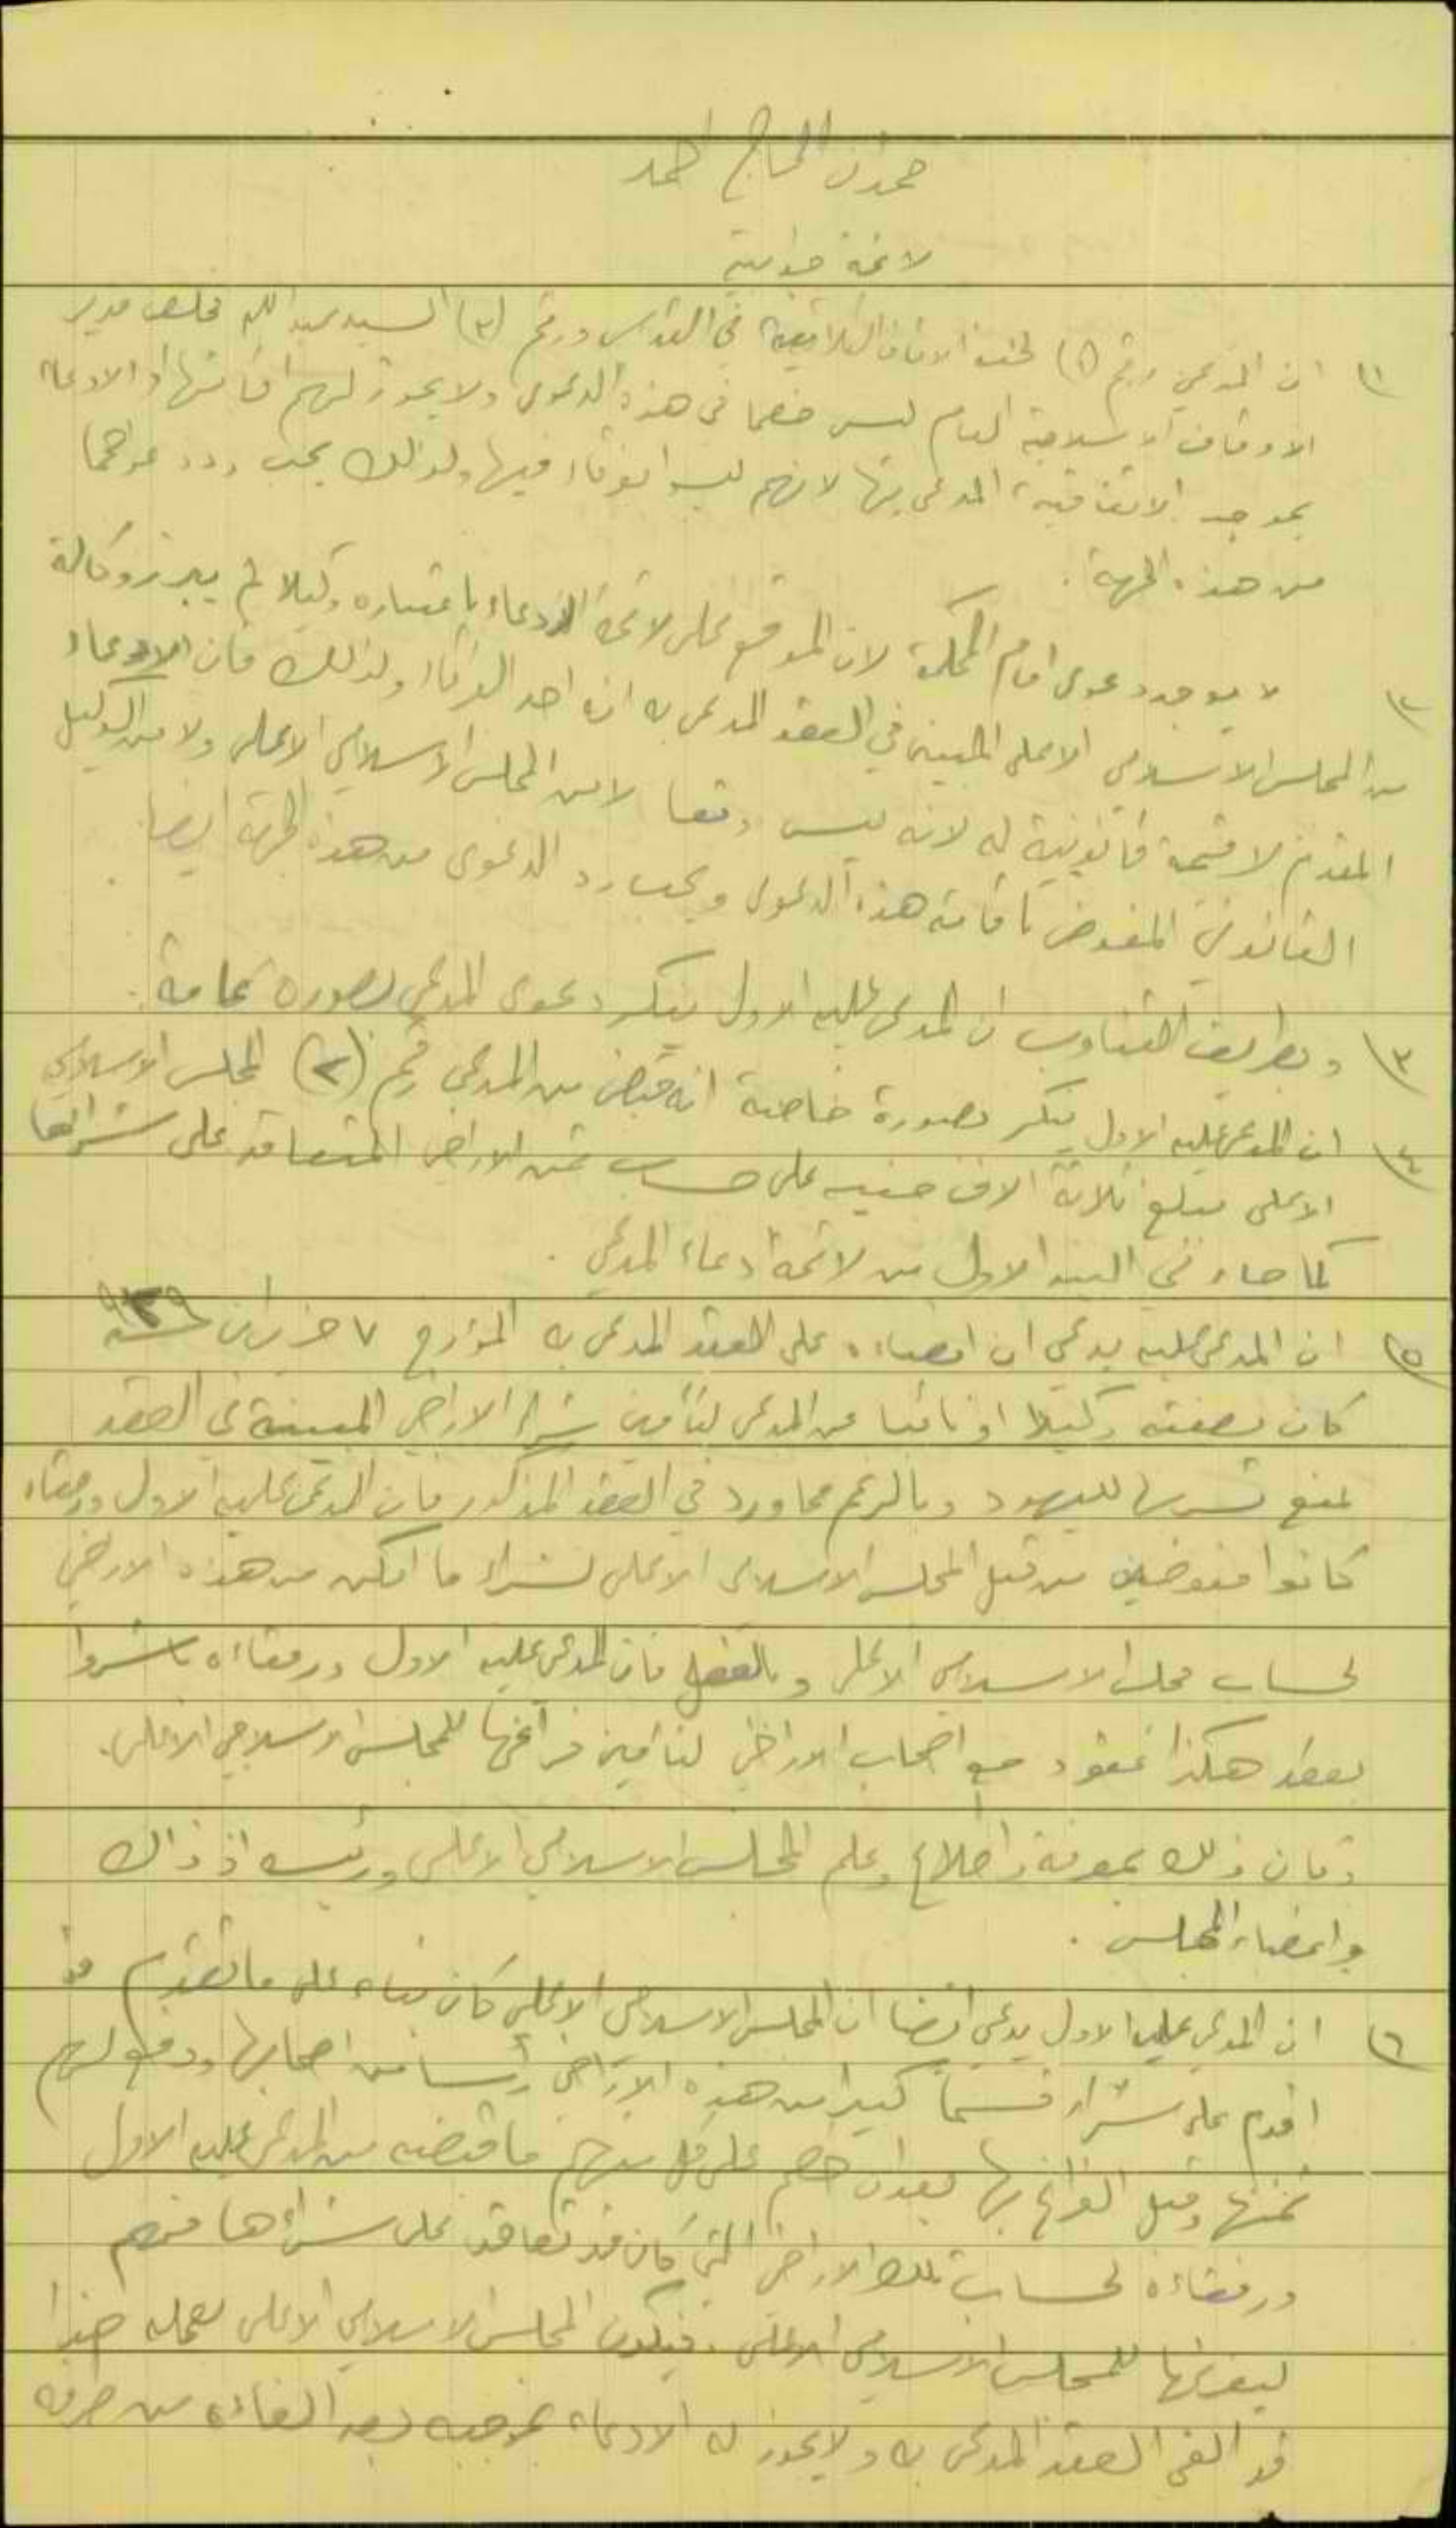 حمدان الحاج احمد
لائحة جوابية
١) ان المدعي رقم (١) لجنة الاوقاف الاسلامية في القدس ورقم (٣) السيد عبد الله مخلص مدير
الاوقاف الاسلامية العام ليس خصما في هذه الدعوى ولا يجوز لهم اقامتها او الادعاء
بموجب الاتفاقية المدعى بها لانهم ليسوا فرقاء فيها ولذلك يجب رد دعواهما
من هذه الجهة .
٢) لا يوجد دعوى امام المحكمة لان الموقع على لائحة الادعاء باعتباره وكيلا لم يبرز وكالة
من المجلس الاسلامي الاعلى المبين في العقد المدعى به انه احد الفرقاء ولذلك فان الادعاء
المقدم لا قيمة قانونية له لانه ليس وقعا لا من المجلس الاسلامي الاعلى ولا من الوكيل
القانوني المفوض باقامة هذه الدعوى ويجب رد الدعوى من هذه الجهة ايضا .
٣) وبطريق التناوب ان المدعى عليه الاول ينكر دعوى المدعي بصورة عامة .
٤) ان المدعى عليه الاول ينكر بصورة خاصة انه قبض من المدعي رقم (٢) المجلس الاسلامي
الاعلى مبلغ ثلاثة الاف جنيه على حساب ثمن الاراضي المتعاقد على شرائها
كما جاء في البند الاول من لائحة ادعاء المدعي .
٥) ان المدعى عليه يدعي ان امضاءه على العقد المدعى به المؤرخ ٧ حزيران سنة
كان بصفته وكيلا او نائبا عن المدعي لتأمين شراء الاراضي المبينة في العقد
لمنع تسربها لليهود وبالرغم مما ورد في العقد المذكور فان المدعى عليه الاول ورفقاه
كانوا مفوضين من قبل المجلس الاسلامي الاعلى لشراء ما امكن من هذه الاراضي
لحساب مجلس الاسلامي الاعلى وبالفعل فان المدعى عليه الاول ورفقاءه باشروا
بعقد هكذا عقود مع اصحاب الاراضي لتأمين فراغها للمجلس الاسلامي الاعلى.
وكان ذلك بمعرفة واطلاع وعلم المجلس الاسلامي الاعلى ورئيسه اذ ذاك
واعضاء المجلس .
٦) ان المدعى عليه الاول يدعي ايضا ان المجلس الاسلامي الاعلى كان بناء على ما تقدم قد
اقدم على شراء قسما كبيرا من هذه الاراضي رأسا من اصحابها ودفع لهم
ثمنها وقبل الفراغ بها بعد ان خصم على كل منهم ما قبضه من المدعى عليه الاول
ورفقاءه لحساب تلك الاراضي التي كان قد تعاقد على شراءها منهم
ليفرغها للمجلس الاسلامي الاعلى . فيكون المجلس الاسلامي الاعلى بعمله هذا
قد الغى العقد المدعى به ولا يجوز له الادعاء بموجبه بعد الغاءه من طرفه